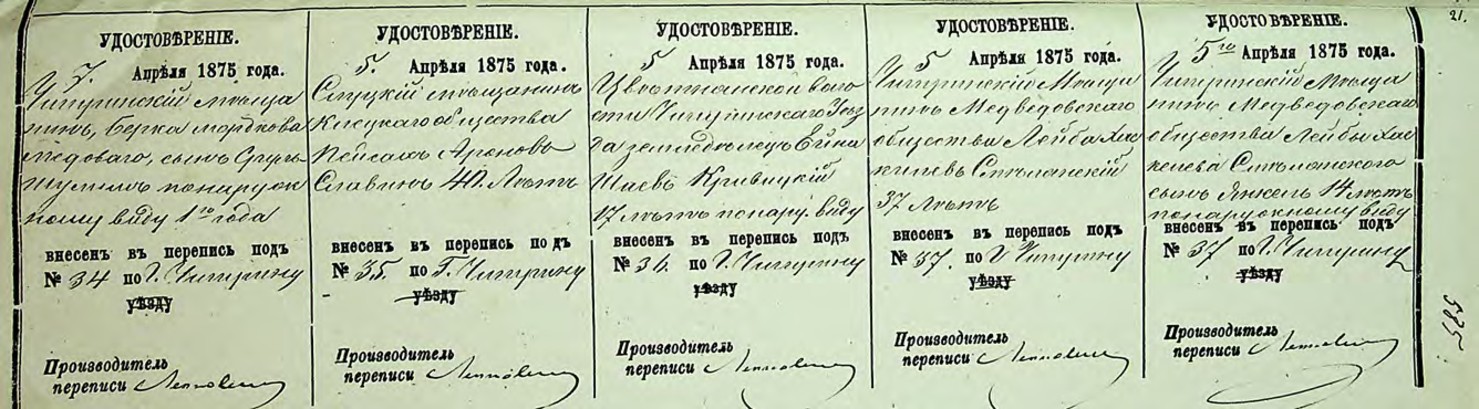 21.
УДОСТОВѢРЕНІЕ.
5. Апрѣля 1875 года.
Чигиринскій мѣща
нинъ, Берка Мордкова
сынъ Сруль
Шулимъ по наруж
ному виду 1го года
внесенъ въ перепись подъ
№ 34 по Г. Чигирину
уѣзду
Производитель
переписи
УДОСТОВѢРЕНІЕ.
5. Апрѣля 1875 года.
Слуцкій мѣщанинъ
Клецкаго общества
Пейсахъ Ароновъ
Славинъ 40. Лѣтъ
внесенъ въ перепись подъ
№ 35. по Г. Чигирину
уѣзду
Производитель
переписи
УДОСТОВѢРЕНІЕ.
5 Апрѣля 1875 года.
Цвѣтнянской воло
сти Чигиринскаго Уѣз
да земледѣлецъ
Шаевъ Кривицкій
17 лѣтъ по наруж. виду
внесенъ въ перепись подъ
№ 36. по Г. Чигирину
уѣзду
Производитель
переписи
УДОСТОВѢРЕНІЕ.
5 Апрѣля 1875 года.
Чигиринскій Мѣща
нинъ Медведовскаго
общества Лейба Хас
килевъ Смѣлянскій
37 лѣтъ
внесенъ въ перепись подъ
№ 37. по Г. Чигирину
уѣзду
Производитель
переписи
УДОСТОВѢРЕНІЕ.
5го Апрѣля 1875 года.
Чигиринскій Мѣща
нинъ Медведовскаго
общества Лейбы Хас
келева Смѣлянскаго
сынъ Янкель 14 лѣтъ
по наружному виду
внесенъ въ перепись подъ
№ 37 по Г. Чигирину
уѣзду
Производитель
переписи
585